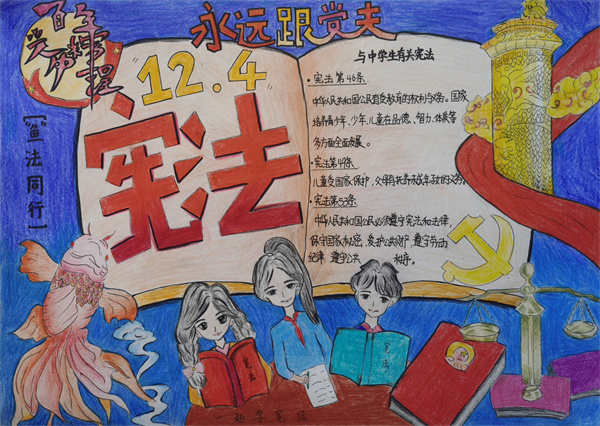 百年
永远跟党走
12.4
宪法
【鱼法同行】
与中学生有关宪法
·宪法第46条
中华人民共和国公民有受教育的权利与义务。国家
培养青年、少年、儿童在品德、智力、体质等
多方面全面发展。
·宪法第49条
儿童受国家保护,父母有抚养未成年子女的义务。
·宪法第53条
中华人民共和国公民必须遵守宪法和法律,
保守国家秘密,爱护公共财产 遵守劳动
纪律 遵守公共 秩序。
宪法
宪法
一起学宪法